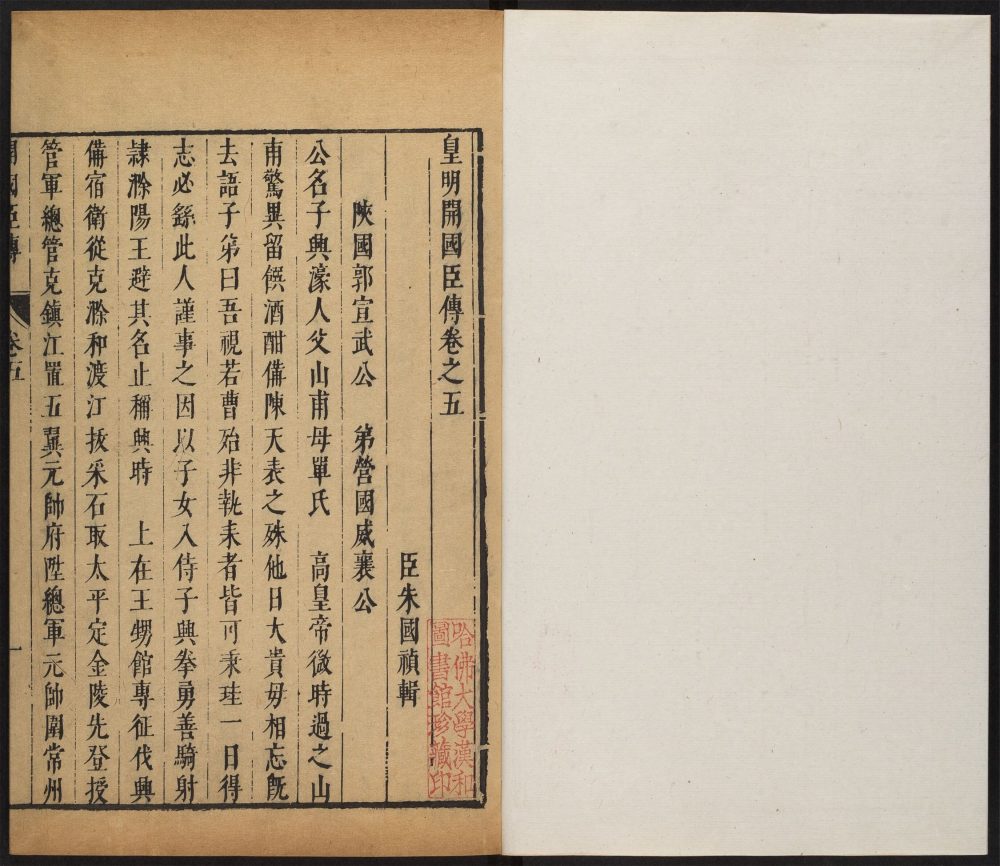 皇明開國臣傳卷之五
臣朱國禎輯
陝國郭宣武公　弟營國威襄公
公名子興濠人父山甫母單氏　高皇帝微時過之山
甫驚異留饌酒酣備陳天表之殊他日大貴毋相忘旣
去語子弟曰吾視若曹殆非執耒者皆可乘珪一日得
志必繇此人謹事之因以子女入侍子興拳勇善騎射
隷滁陽王避其名止稱興時　上在王甥館專征伐興
備宿衛從克滁和渡江拔采石取太平定金陵先登授
管軍總管克鎮江置五翼元帥府陞總軍元帥圍常州
開國臣傳　卷五　一
哈佛大學漢和
圖書館珍藏印